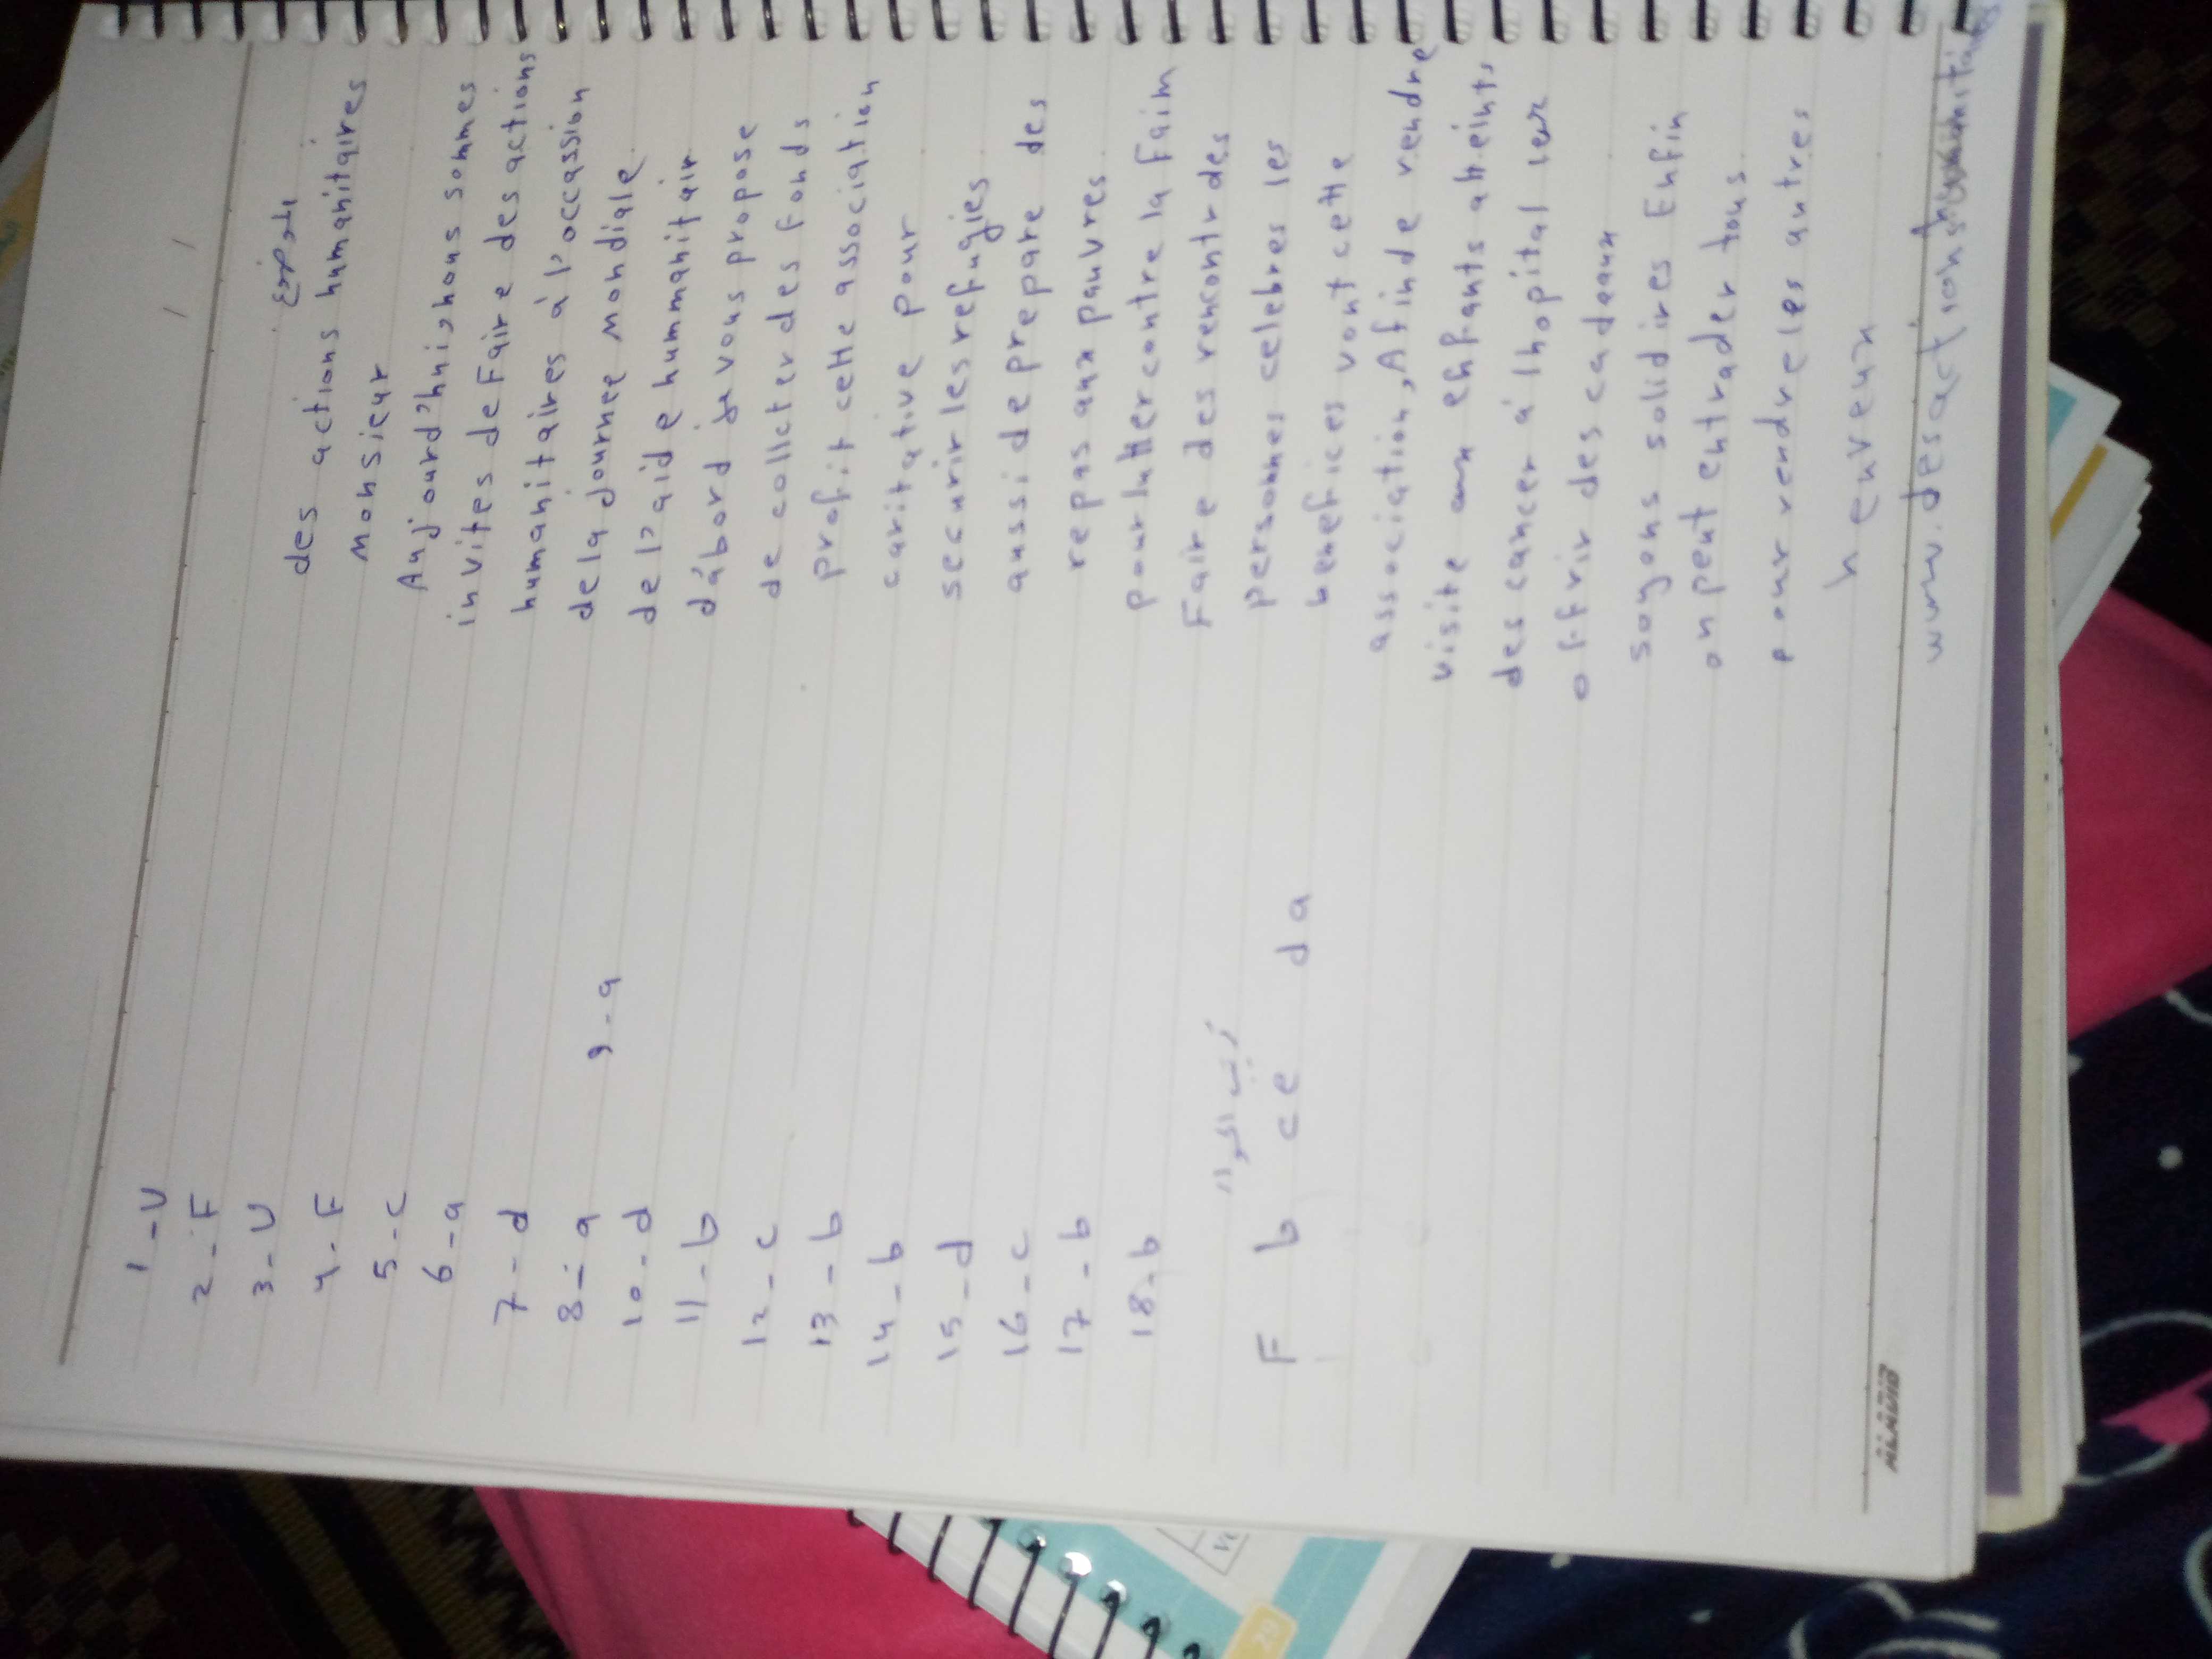 1_U
2_F
3_U
4_F
5_c
6_a
7_d
8_a
9_a
10_d
11_b
12_c
13_b
14_b
15_d
16_c
17_b
18_b
F b ce da
des actions humanitaires
Monsieur
Auj'ourd'hui, nous sommes
invites de Faire des actions
humanitaires à l'occassion
de la Journee Mondiale
de l'aide hummanitair
d'abord je vous propose
de collcter des fonds
profit cette association
caritative pour
securir les refugies
aussi de prepare des
repas aux pauvres
pour lutter contre la Faim
Faire des rencontr des
personnes celebres les
benefices vont cette
association, Afin de rendre
visite aux enfants atteints
des cancer à lhopital leur
offrir des cadeaux
soyons solidires Enfin
on peut entrader tous
pour rendre les autres
heureux
www.desactions
ALAWIB
20